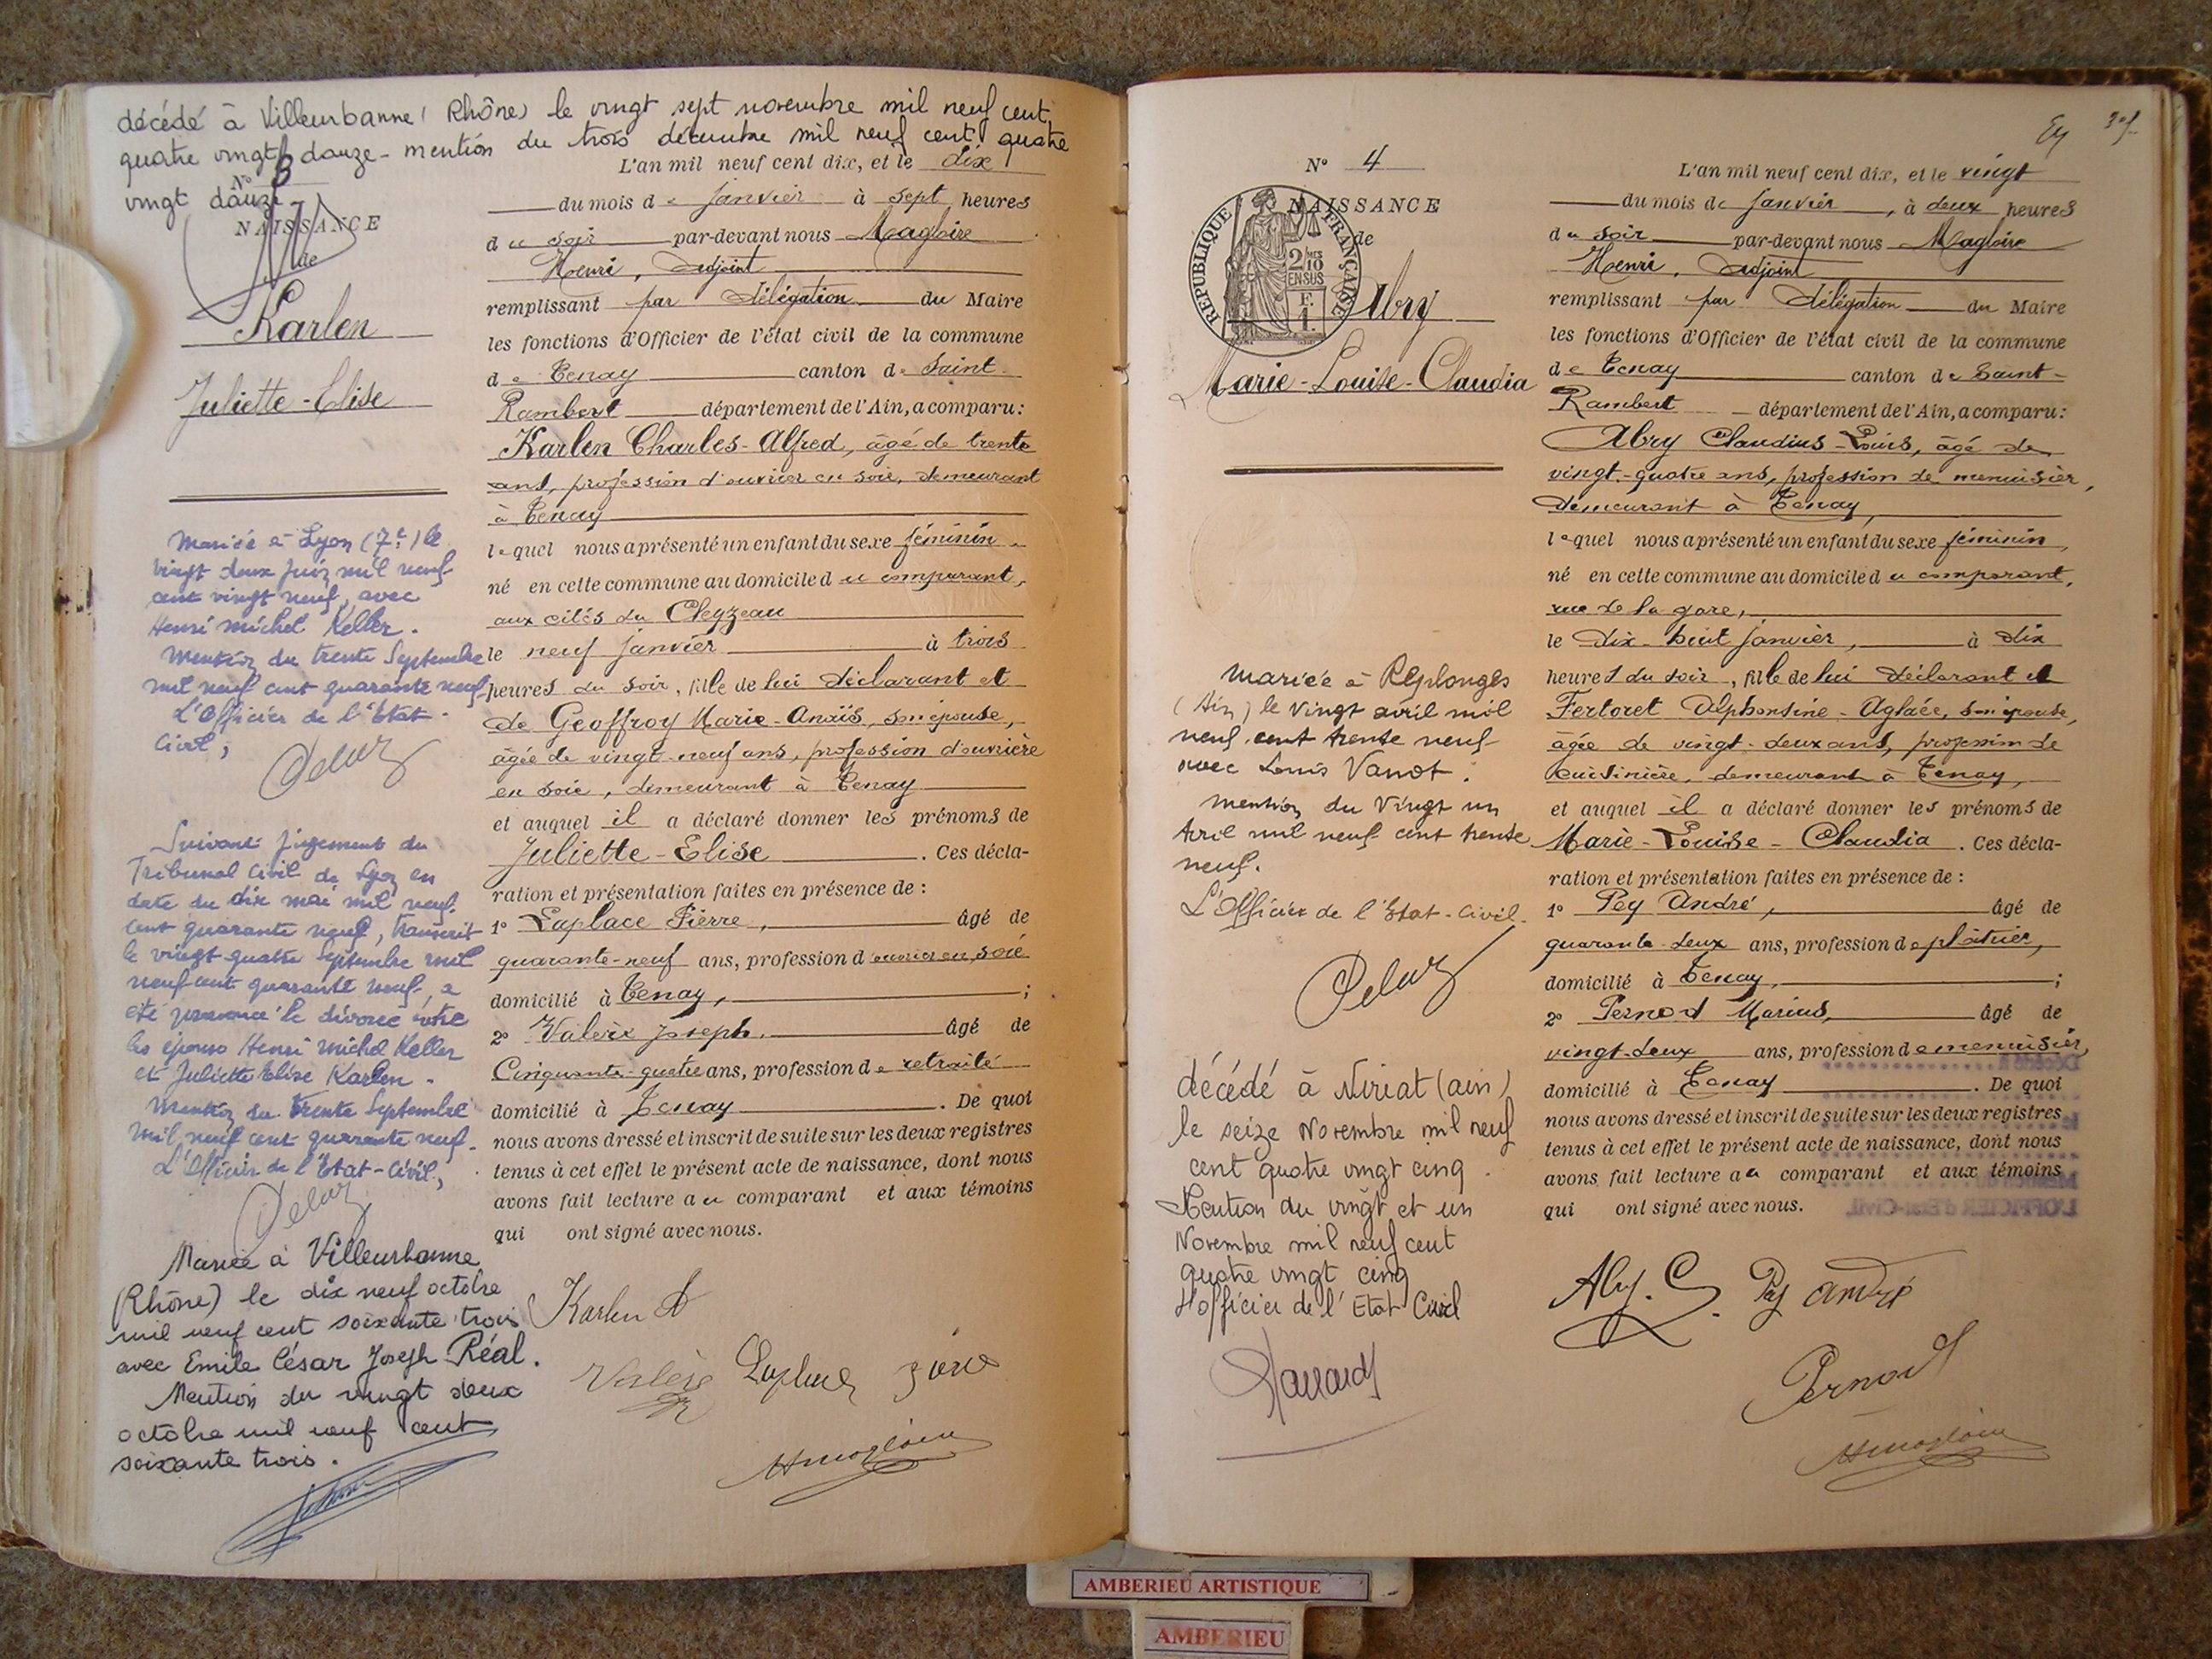 décédé à Villeurbanne (Rhône) le vingt sept novembre mil neuf cent
quatre vingt douze - mention du trois décembre mil neuf cent quatre
vingt douze -
N° 3
NAISSANCE
de
Karlen
Juliette-Elise
Mariée à Lyon (7e) le
vingt deux juin mil neuf
cent vingt neuf, avec
Henri Michel Keller.
Mention du trente Septembre
mil neuf cent quarante neuf
L'Officier de l'Etat-
Civil,
Suivant jugement du
Tribunal Civil de Lyon en
date du dix mai mil neuf
cent quarante neuf, transcrit
le vingt quatre Septembre mil
neuf cent quarante neuf, a
été prononcé le divorce entre
les époux Henri Michel Keller
et Juliette Elise Karlen.
Mention du trente Septembre
mil neuf cent quarante neuf.
L'Officier de l'Etat-Civil,
Mariée à Villeurbanne
(Rhône) le dix neuf octobre
mil neuf cent soixante trois
avec Emile César Joseph Réal.
Mention du vingt deux
octobre mil neuf cent
soixante trois.
L'an mil neuf cent dix, et le dix
du mois de janvier à sept heures
du soir par-devant nous Magloire
Henri, adjoint
remplissant par délégation du Maire
les fonctions d'Officier de l'état civil de la commune
de Tenay canton de Saint
Rambert département de l'Ain, a comparu:
Karlen Charles-Alfred, âgé de trente
ans, profession d'ouvrier en soie, demeurant
à Tenay
lequel nous a présenté un enfant du sexe féminin
né en cette commune au domicile du comparant,
aux cités du Cleyzeau
le neuf janvier à trois
heures du soir, fille de lui déclarant et
de Geoffroy Marie-Anaïs, son épouse,
âgée de vingt-neuf ans, profession d'ouvrière
en soie, demeurant à Tenay
et auquel il a déclaré donner les prénoms de
Juliette-Elise. Ces décla-
ration et présentation faites en présence de :
1° Laplace Pierre, âgé de
quarante-neuf ans, profession d'ouvrier en soie
domicilié à Tenay, ;
2° Joseph, âgé de
Cinquante-quatre ans, profession de retraité
domicilié à Tenay. De quoi
nous avons dressé et inscrit de suite sur les deux registres
tenus à cet effet le présent acte de naissance, dont nous
avons fait lecture au comparant et aux témoins
qui ont signé avec nous.
Karlen
N° 4
NAISSANCE
de
REPUBLIQUE FRANÇAISE
2/10
EN SUS
F.
1.
Abry
Marie-Louise-Claudia
Mariée à Replonges
(Ain) le vingt avril mil
neuf cent trente neuf
avec Louis Vanot.
Mention du vingt un
Avril mil neuf cent trente
neuf.
L'Officier de l'Etat-Civil.
décédé à Viriat (ain)
le seize Novembre mil neuf
cent quatre vingt cinq.
Mention du vingt et un
Novembre mil neuf cent
quatre vingt cinq
L'officier de l'Etat Civil
L'an mil neuf cent dix, et le vingt
du mois de janvier, à deux heures
du soir par-devant nous Magloire
Henri, adjoint
remplissant par délégation du Maire
les fonctions d'Officier de l'état civil de la commune
de Tenay canton de Saint-
Rambert département de l'Ain, a comparu:
Abry Claudius-Louis, âgé de
vingt-quatre ans, profession de menuisier,
demeurant à Tenay,
lequel nous a présenté un enfant du sexe féminin,
né en cette commune au domicile du comparant,
rue de la gare,
le dix-huit janvier, à dix
heures du soir, fille de lui déclarant et
Fertoret Alphonsine-Aglaée, son épouse,
âgée de vingt-deux ans, profession de
cuisinière, demeurant à Tenay,
et auquel il a déclaré donner les prénoms de
Marie-Louise-Claudia. Ces décla-
ration et présentation faites en présence de :
1° Pey André, âgé de
quarante-deux ans, profession de plâtrier,
domicilié à Tenay, ;
2° Pernod Marius, âgé de
vingt-deux ans, profession de menuisier,
domicilié à Tenay. De quoi
nous avons dressé et inscrit de suite sur les deux registres
tenus à cet effet le présent acte de naissance, dont nous
avons fait lecture au comparant et aux témoins
qui ont signé avec nous.
Pey André
Pernod
AMBERIEU ARTISTIQUE
AMBERIEU